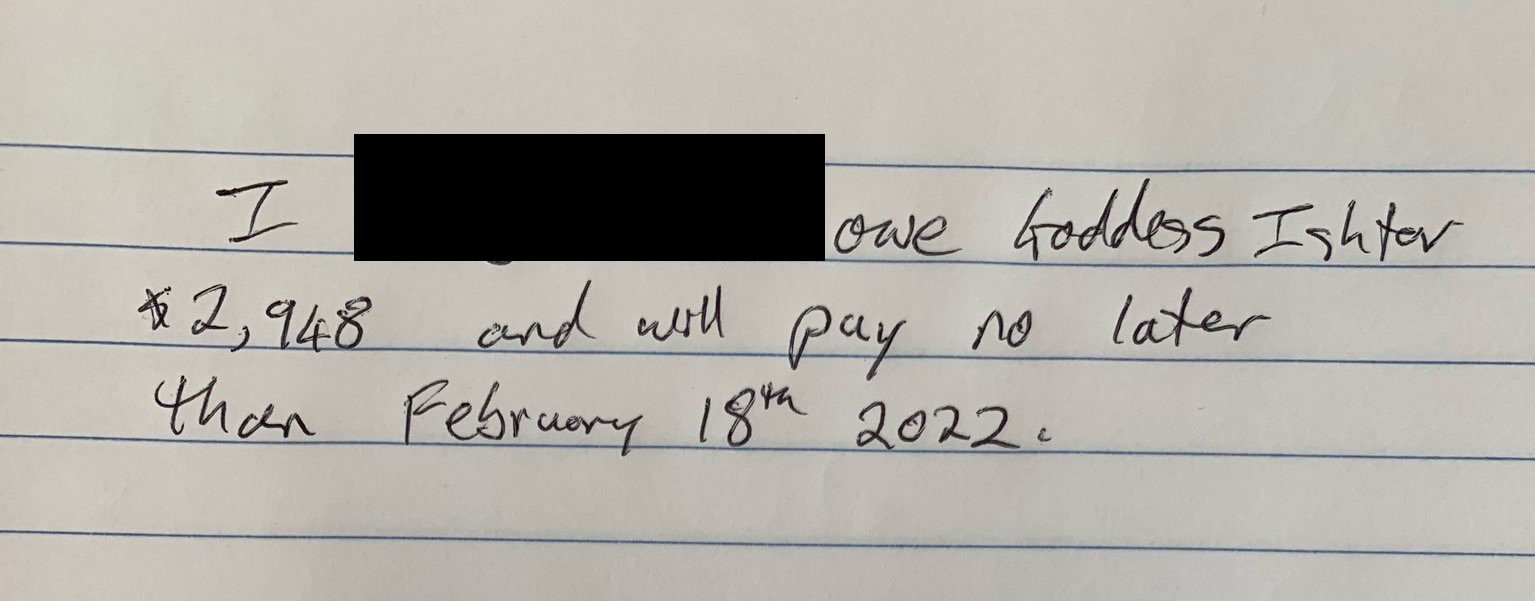 I owe Goddess Ishtar
$2,948 and will pay no later
than February 18th 2022.